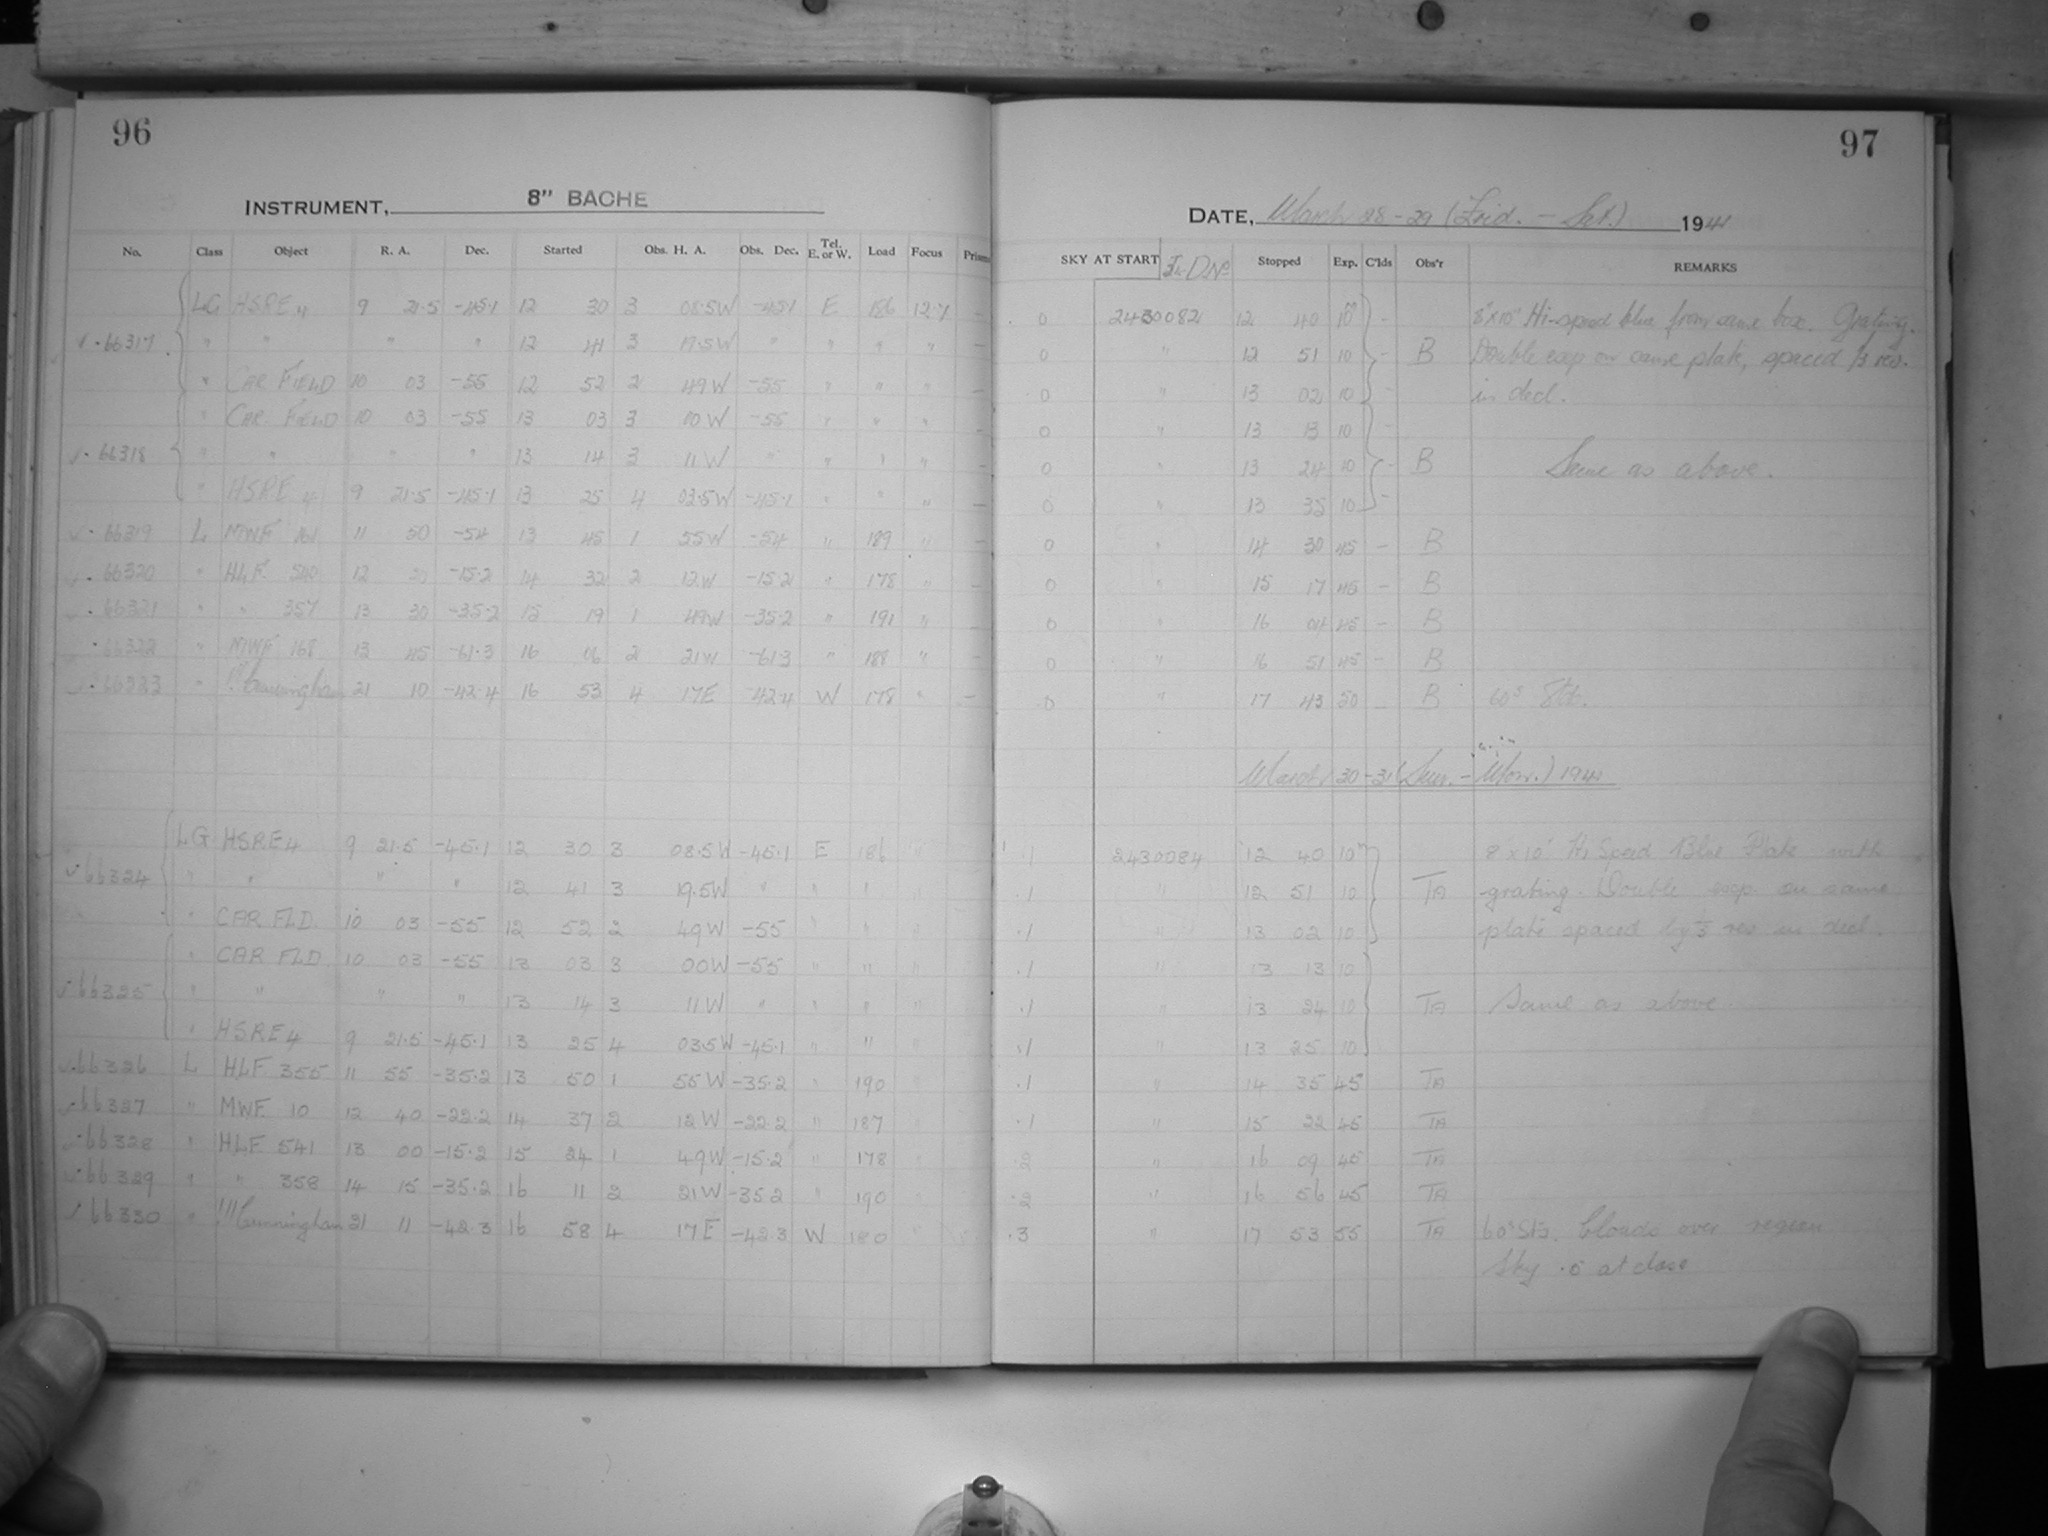 96
INSTRUMENT, 8" BACHE
No. Class Object R. A. Dec. Started Obs. H. A. Obs. Dec. Tel. E. or W. Load Focus Prism
LG HSRE 4 9 21.5 -45.1 12 30 3 08.5W -45.1 E 186 12.7 -
66317 " " " " 12 41 3 19.5W " " " "
" CAR FIELD 10 03 -55 12 52 2 49W -55 " " "
" CAR. FIELD 10 03 -55 13 03 3 00W -55 " " "
66318 " " " " 13 14 3 11W " " " " -
" HSRE 4 9 21.5 -45.1 13 25 4 03.5W -45.1 " " " -
66319 L MWF 161 11 50 -54 13 45 1 55W -54 " 189 " -
66320 " HLF 540 12 -15.2 14 32 2 12W -15.2 " 178 "
66321 " " 357 13 30 -35.2 15 19 1 49W -35.2 " 191 "
66322 " MWF 168 13 45 -61.3 16 06 2 21W -61.3 " 188 "
66323 " !!! Cunningham 21 10 -42.4 16 53 4 17E -42.4 W 178 " -
LG HSRE 4 9 21.5 -45.1 12 30 3 08.5W -45.1 E 186 "
66324 " " " " 12 41 3 19.5W " " " "
" CAR FLD. 10 03 -55 12 52 2 49W -55 " " "
" CAR FLD 10 03 -55 13 03 3 00W -55 " " "
66325 " " " " 13 14 3 11W " " " "
" HSRE 4 9 21.5 -45.1 13 25 4 03.5W -45.1 " " "
66326 L HLF 355 11 55 -35.2 13 50 1 55W -35.2 " 190 "
66327 " MWF 10 12 40 -22.2 14 37 2 12W -22.2 " 187 "
66328 " HLF 541 13 00 -15.2 15 24 1 49W -15.2 " 178 "
66329 " " 358 14 15 -35.2 16 11 2 21W -35.2 " 190 "
66330 " !!! Cunningham 21 11 -42.3 16 58 4 17E -42.3 W 180 "
97
DATE, March 28-29 (Frid. - Sat.) 1941
SKY AT START J.D No Stopped Exp. C'lds Obs'r REMARKS
0 2430082 12 40 10 - 8"x10" Hi-speed blue from same box. Grating.
0 " 12 51 10 - B Double exp on same plate, spaced 1/3 rev.
0 " 13 02 10 - in decl.
0 " 13 13 10 -
0 " 13 24 10 - B Same as above.
0 " 13 35 10 -
0 " 14 30 45 - B
0 " 15 17 45 - B
0 " 16 04 45 - B
0 " 16 51 45 - B
0 " 17 43 50 - B 60s St.
March 30-31 (Sun. - Mon.) 1941
.1 2430084 12 40 10m 8"x10" Hi Speed Blue Plate with
.1 " 12 51 10 TA grating. Double exp. on same
.1 " 13 02 10 plate spaced by 1/3 rev in decl.
.1 " 13 13 10
.1 " 13 24 10 TA Same as above
.1 " 13 25 10
.1 " 14 35 45 TA
.1 " 15 22 45 TA
.2 " 16 09 45 TA
.2 " 16 56 45 TA
.3 " 17 53 55 TA 60s Sts. Clouds over region
Sky .5 at close